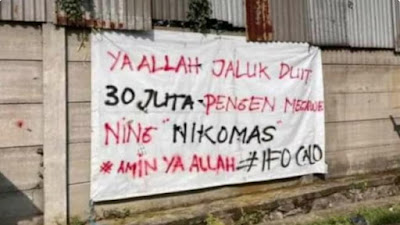 YA ALLAH JALUK DUIT
30 JUTA-PENGEN MEGAWE
NING "NIKOMAS"
# AMIN YA ALLAH-#IFO CALO